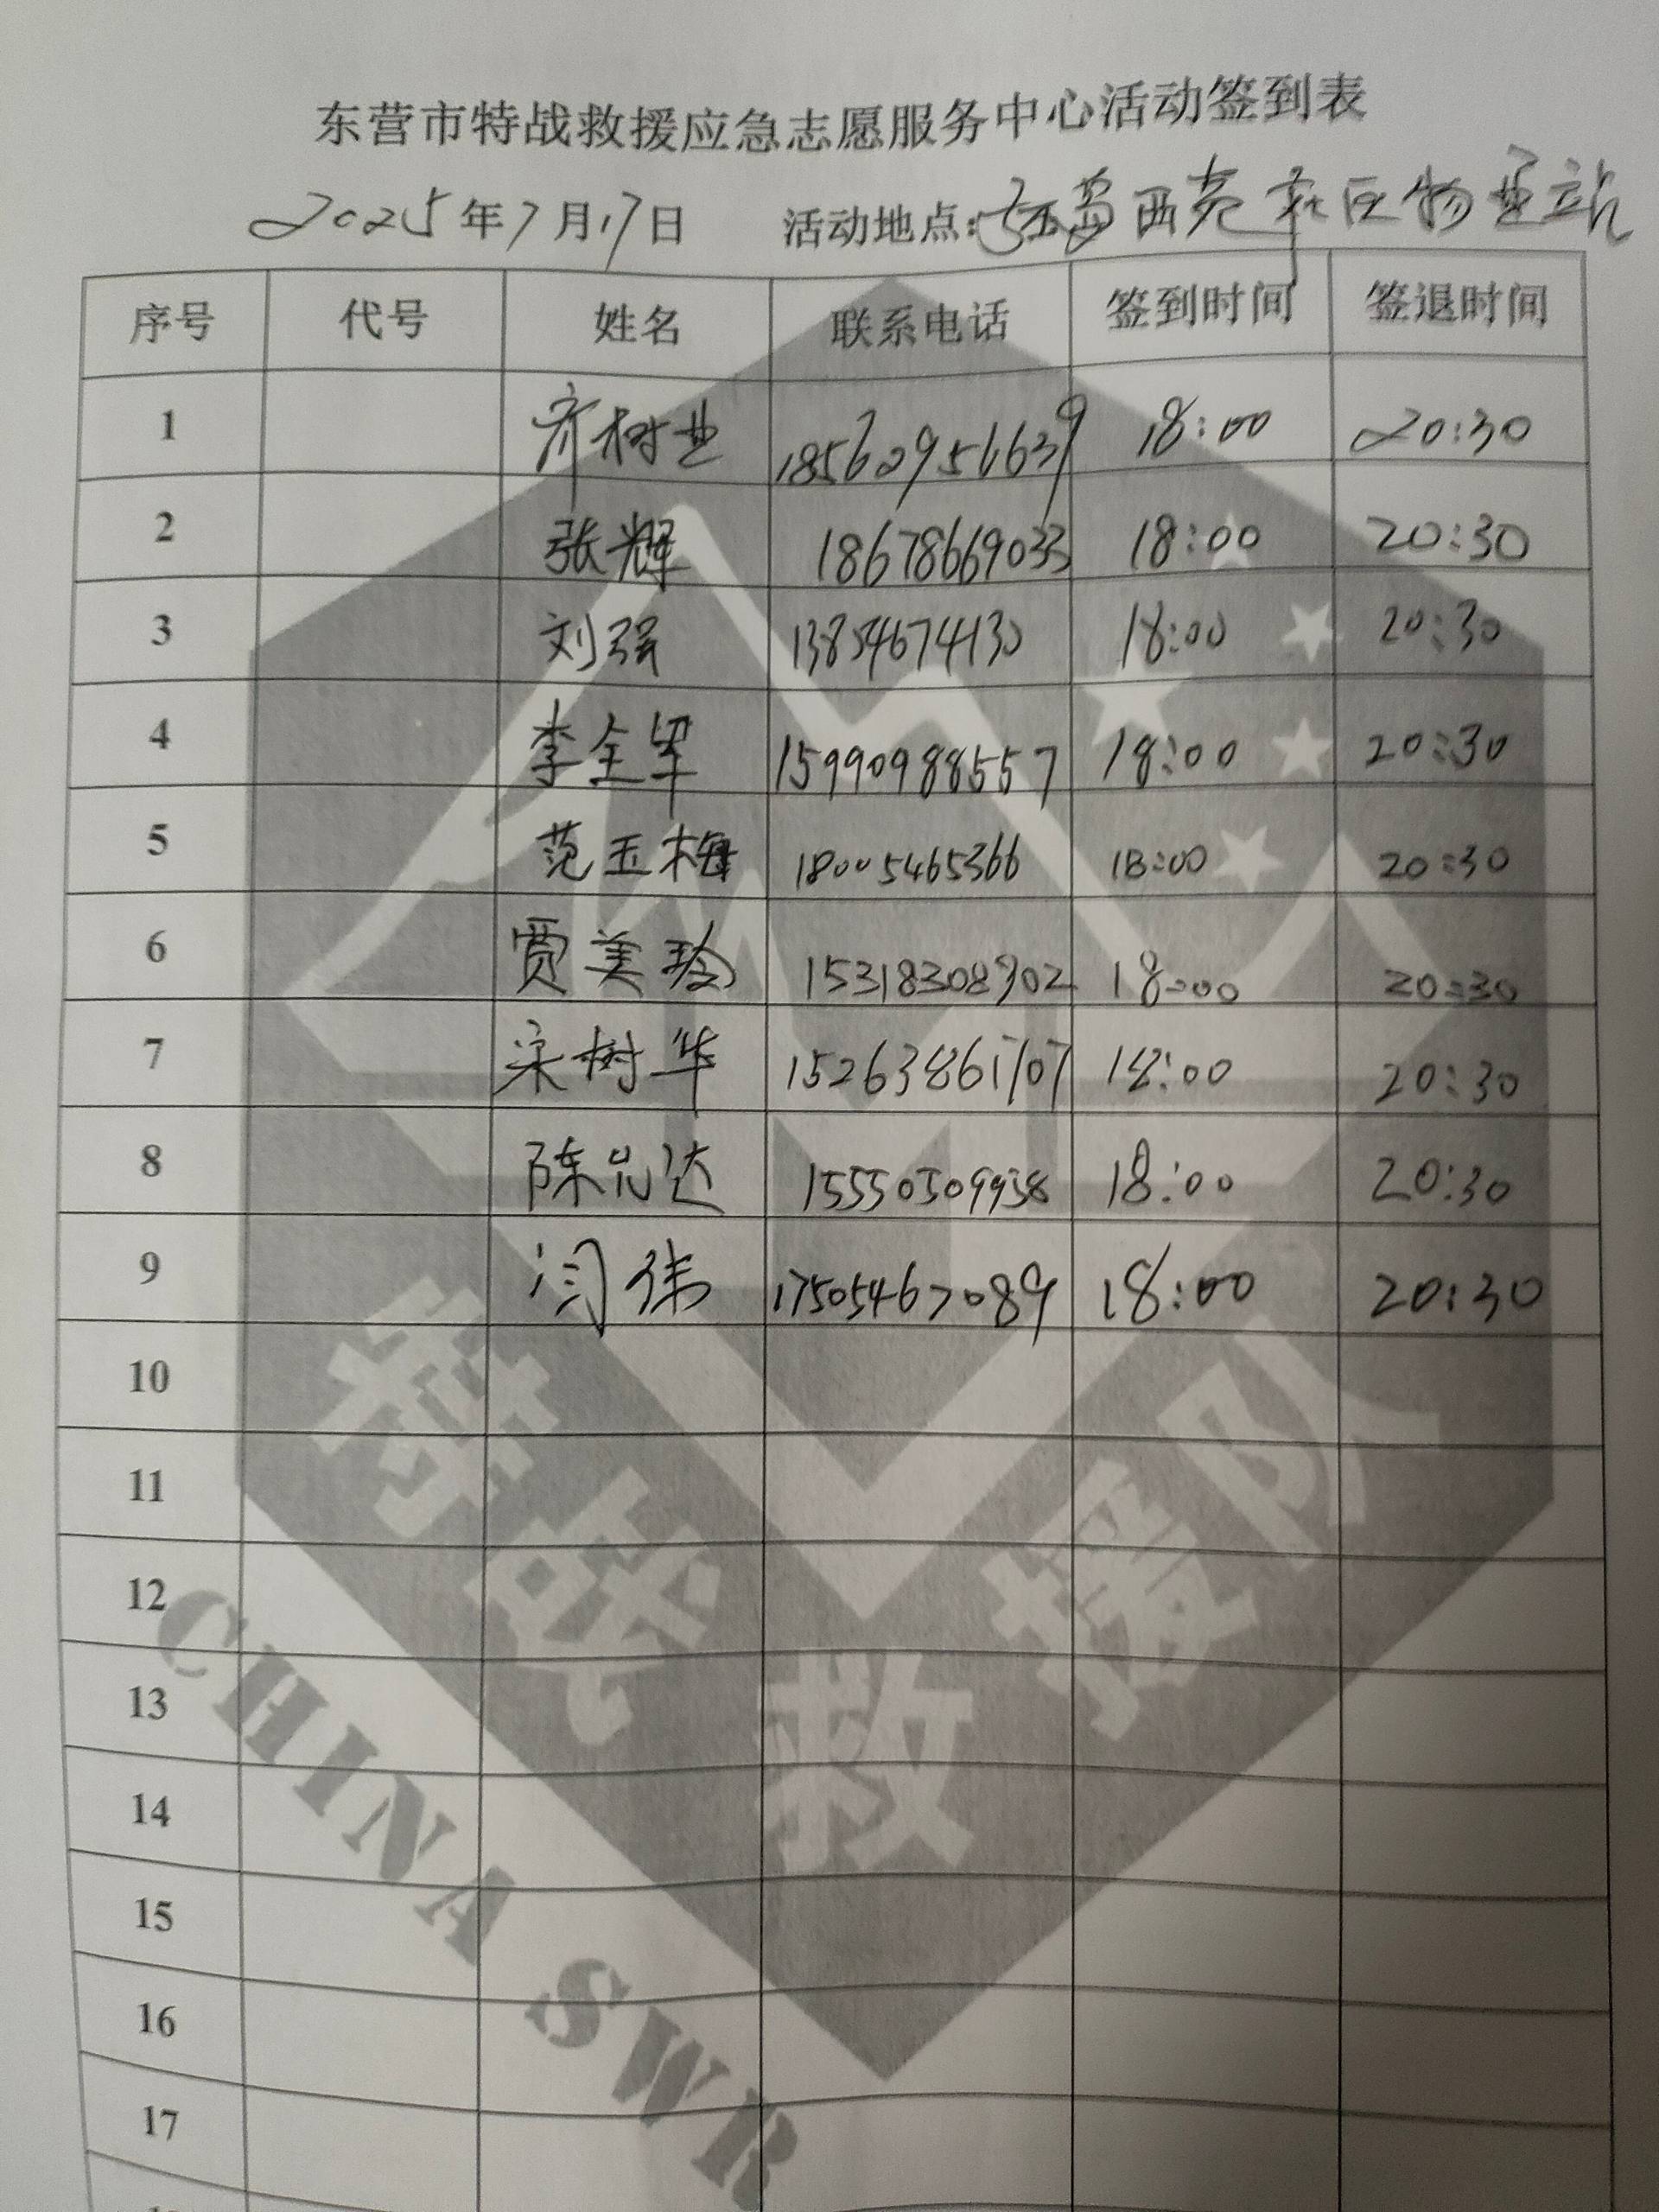 东营市特战救援应急志愿服务中心活动签到表
2025年7月17日 活动地点:西苑社区物业站
序号 代号 姓名 联系电话 签到时间 签退时间
1 齐树业 18562956639 18:00 20:30
2 张辉 18678669033 18:00 20:30
3 刘强 13854674130 18:00 20:30
4 李全军 15990988557 18:00 20:30
5 范玉梅 18005465366 18:00 20:30
6 贾美玲 15318308902 18:00 20:30
7 宋树华 15263861707 18:00 20:30
8 陈光达 15550509938 18:00 20:30
9 闫伟 17505467089 18:00 20:30
10
11
12
13
14
15
16
17
特战救援队
CHINA SWR